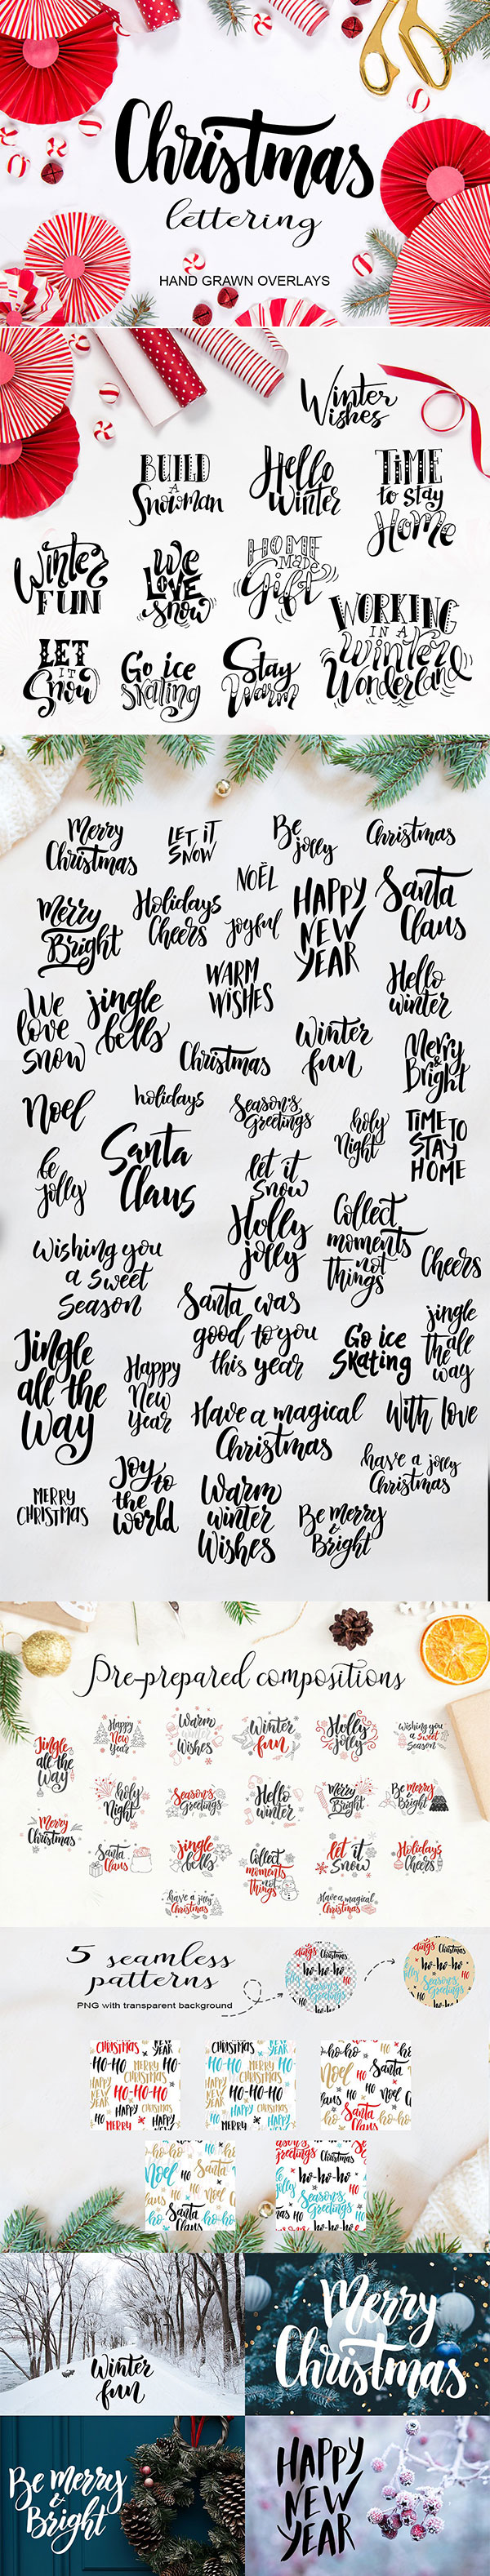 Christmas
lettering
HAND GRAWN OVERLAYS
Winter
Wishes
BUILD
A
Snowman
Hello
Winter
TiME
to stay
Home
Winter
FUN
We
LOVE
Snow
HOME
MADE
Gift
WORKING
IN A
Winter
Wonderland
LET
IT
Snow
Go ice
skating
Stay
Warm
Merry
Christmas
LET iT
SNOW
Be
jolly
Christmas
Merry
&
Bright
Holidays
Cheers
NOËL
joyful
HAPPY
NEW
YEAR
Santa
Claus
WARM
WISHES
Hello
winter
We
love
snow
jingle
bells
Christmas
Winter
fun
Merry
&
Bright
Noel
holidays
Season's
Greetings
holy
Night
TiME TO
STAY
HOME
be
jolly
Santa
Claus
let it
snow
Holly
jolly
Collect
moments
not
Things
Cheers
Wishing you
a sweet
Season
Santa was
good to you
this year
Go ice
Skating
jingle
all
the
way
Jingle
all the
Way
Happy
New
Year
Have a magical
Christmas
With love
have a jolly
Christmas
MERRY
CHRISTMAS
Joy to
the
world
Warm
winter
Wishes
Be merry
&
Bright
Pre-prepared compositions
Jingle
all the
Way
Happy
New
Year
Warm
winter
Wishes
Winter
fun
Holly
jolly
Wishing you
a sweet
Season
holy
Night
Season's
Greetings
Hello
winter
Merry
&
Bright
Be merry
&
Bright
Merry
Christmas
Santa
Claus
jingle
bells
Collect
moments
not
Things
let it
Snow
Holidays
Cheers
have a jolly
Christmas
Have a magical
Christmas
5 seamless
patterns
PNG with transparent background
Christmas
ho-ho-ho
Season's
Greetings
HO
Christmas
ho-ho-ho
Season's
Greetings
HO
CHRISTMAS NEW YEAR
HO-HO MERRY CHRISTMAS
HAPPY NEW YEAR HO-HO-HO
HO HAPPY CHRISTMAS
MERRY HAPPY
CHRISTMAS NEW YEAR
HO-HO MERRY CHRISTMAS
HAPPY NEW YEAR HO-HO-HO
HO HAPPY CHRISTMAS
MERRY HAPPY
ho-ho
Noel
Santa
HO
Noel
Santa
Claus
ho-ho
ho-ho
Noel
Santa
HO
ho-ho
Santa
Claus
ho-ho
Christmas
ho-ho-ho
Season's
Greetings
HO
Winter
fun
Merry
Christmas
Be merry
&
Bright
HAPPY
NEW
YEAR